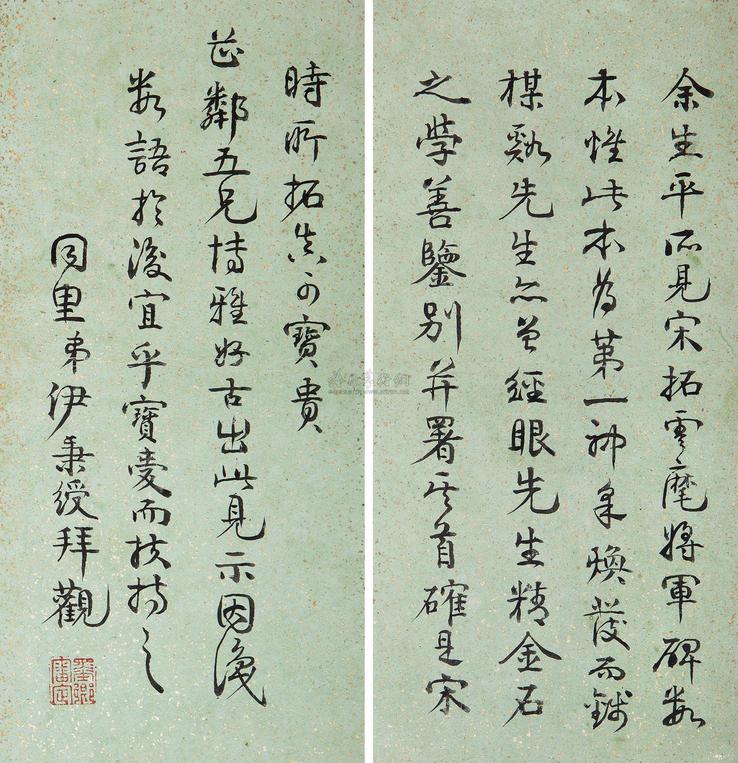 余生平所見宋拓雲麾將軍碑數
本惟此本為第一神采煥發而錢
楳谿先生亦曾經眼先生精金石
之學善鑒別並署其首確是宋
時所拓真可寶貴
芷鄰五兄博雅好古出此見示因識
數語於後宜乎寶愛而扶持之
同里弟伊秉綬拜觀
墨卿
審定